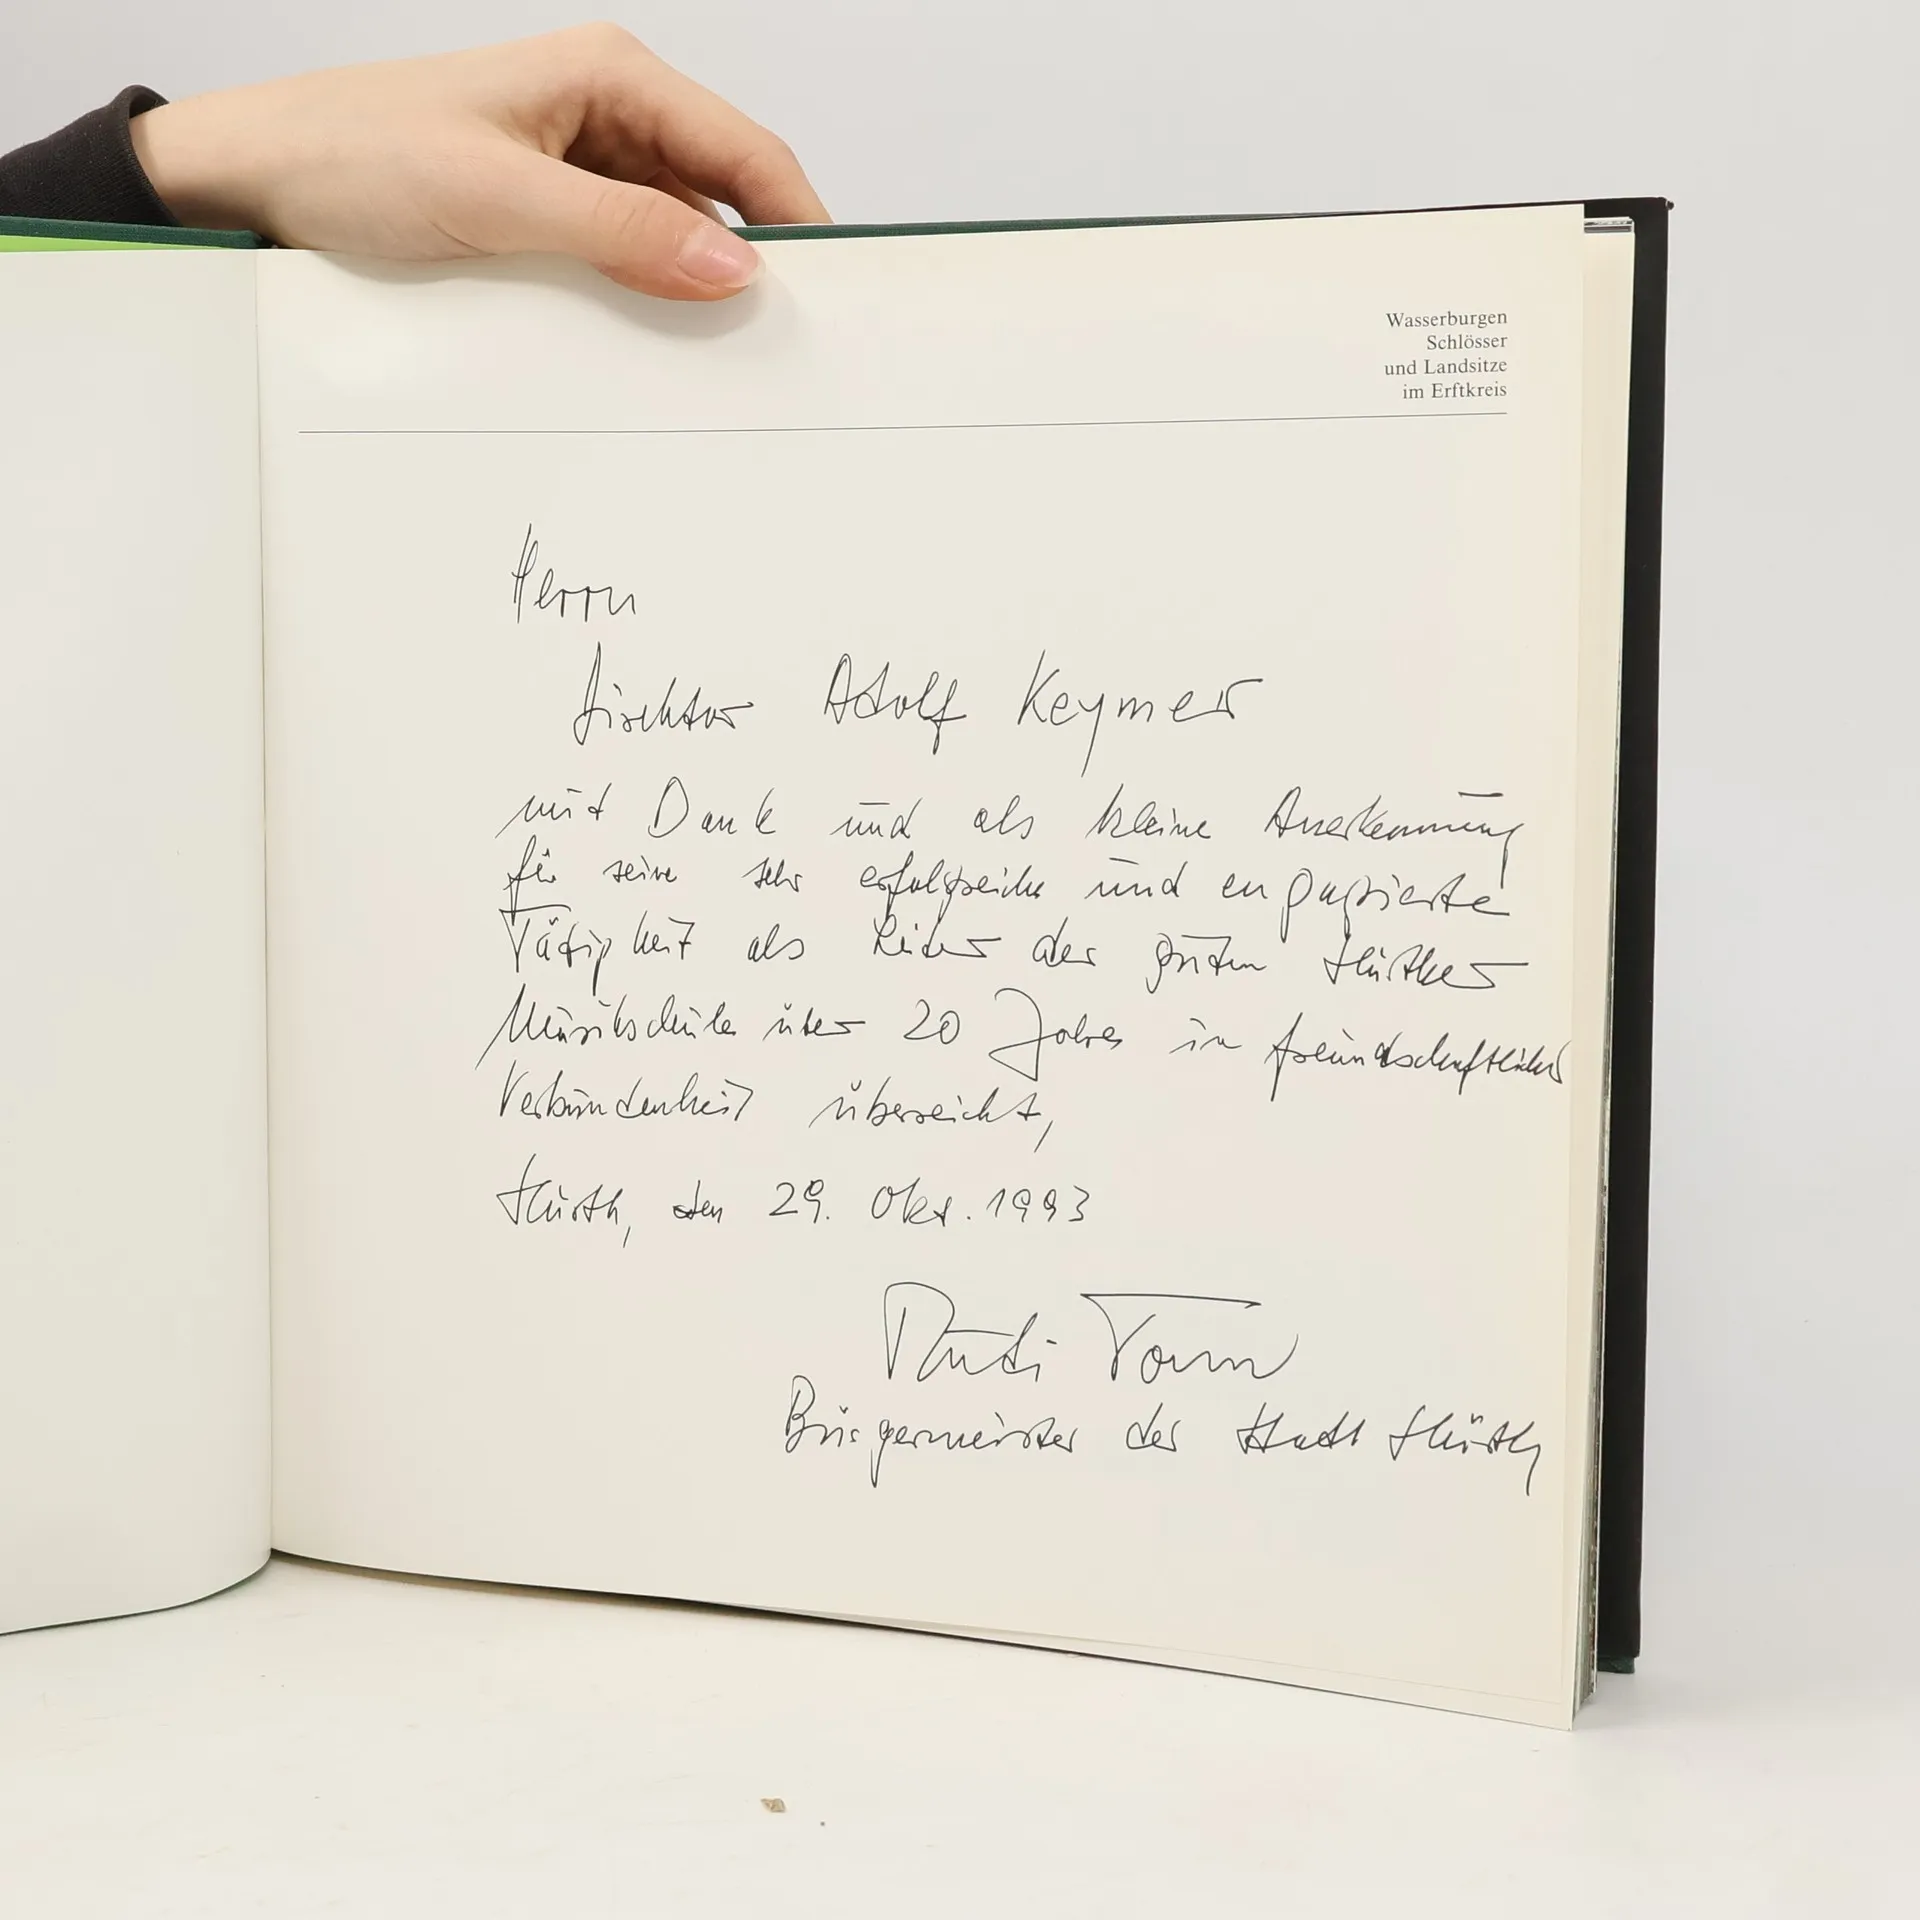 Wasserburgen
Schlösser
und Landsitze
im Erftkreis
Herrn
Direktor Adolf Keymer
mit Dank und als kleine Anerkennung
für seine sehr erfolgreiche und engagierte
Tätigkeit als Leiter der guten Hürther
Musikschule über 20 Jahre in freundschaftlicher
Verbundenheit überreicht,
Hürth, den 29. Okt. 1993
Rudi Tonn
Bürgermeister der Stadt Hürth